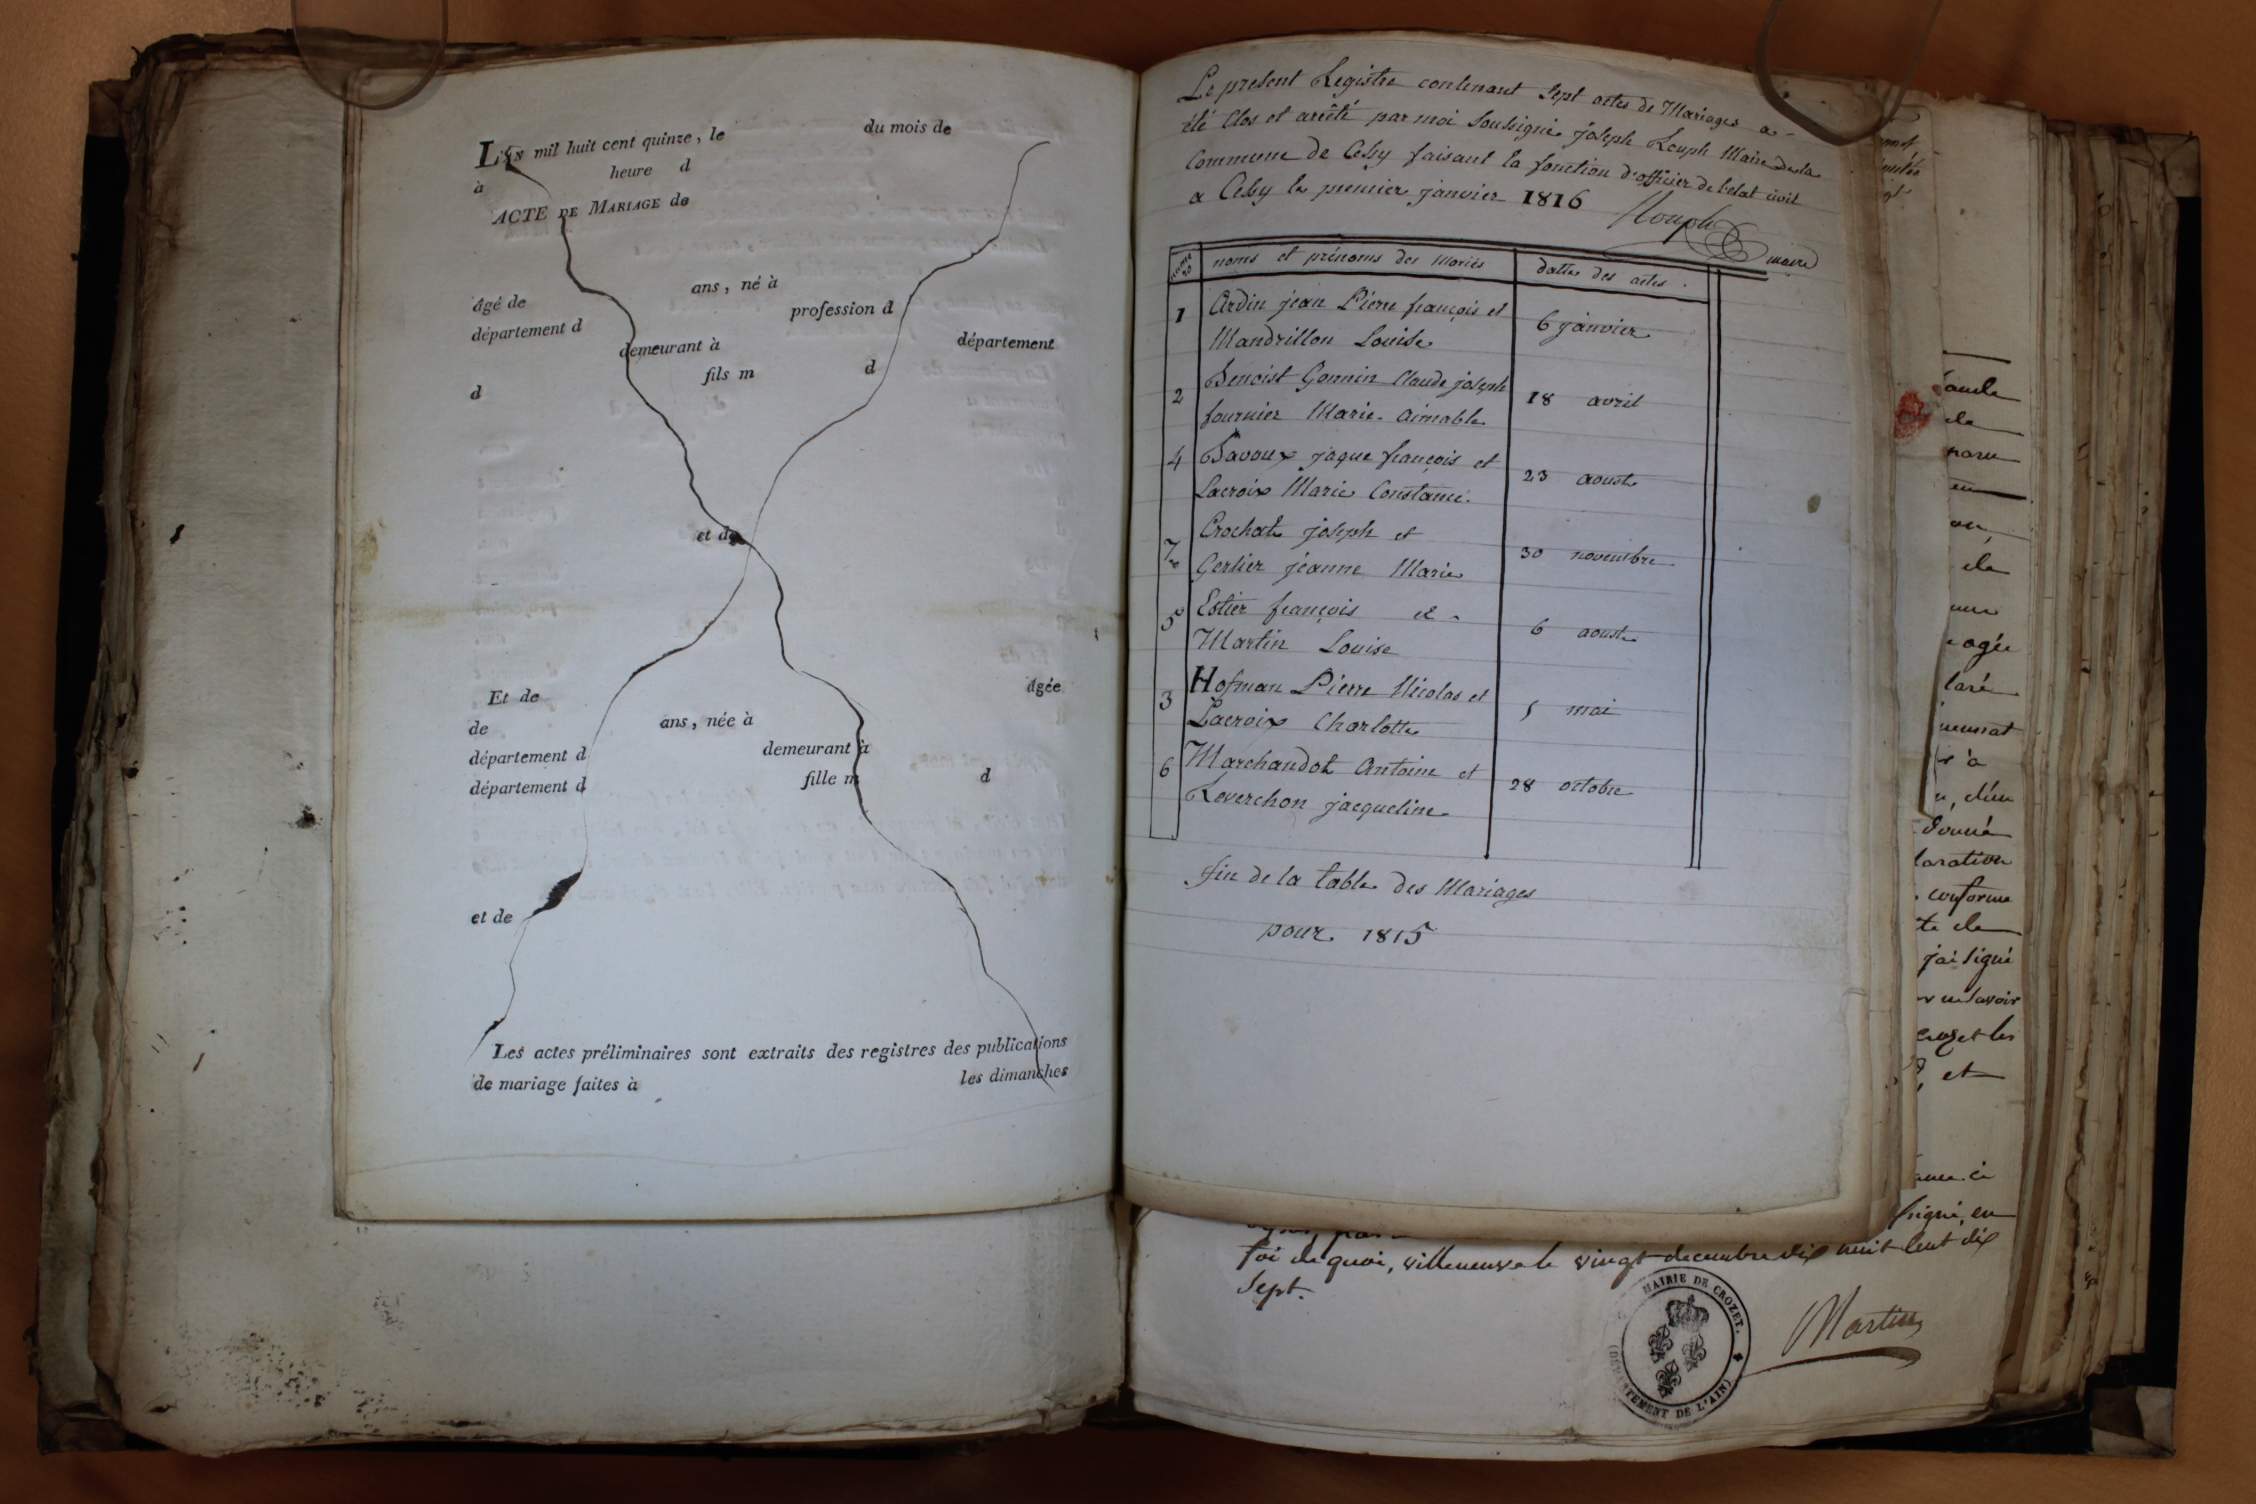 L'an mil huit cent quinze, le du mois de
à heure d
ACTE DE MARIAGE de
âgé de ans, né à
département d profession d
demeurant à département
d fils m d
et de
Et de âgée
de ans, née à
département d demeurant à
département d fille m d
et de
Les actes préliminaires sont extraits des registres des publications
de mariage faites à les dimanches
Le present Registre contenant Sept actes de Mariages a
été Clos et arêté par moi Soussigné joseph Rouph Maire de la
Commune de Cessy faisant la fonction d'officier de l'etat civil
a Cessy le premier janvier 1816
Rouph
maire
noms et prénoms des Mariés dattes des actes
1 Ardin jean Pierre françois et
Mandrillon Louise 6 janvier
2 Benoist Gonnin Claude joseph
fournier Marie-aimable 18 avril
4 Bavoux jaque françois et
Lacroix Marie Constance 23 aoust
7 Crochat joseph et
Gerlier jeanne Marie 30 novembre
5 Estier françois et
Martin Louise 6 aoust
3 Hofman Pierre Nicolas et
Lacroix Charlotte 5 mai
6 Marchandot Antoine et
Reverchon jacqueline 28 octobre
fin de la table des Mariages
pour 1815
agée
d'un
donné
conforme
j'ai signé
et
signé, en
foi de quoi, villeneuve le vingt decembre dix huit cent dix
Sept.
MAIRIE DE CROZET.
(DÉPARTEMENT DE L'AIN)
Martin